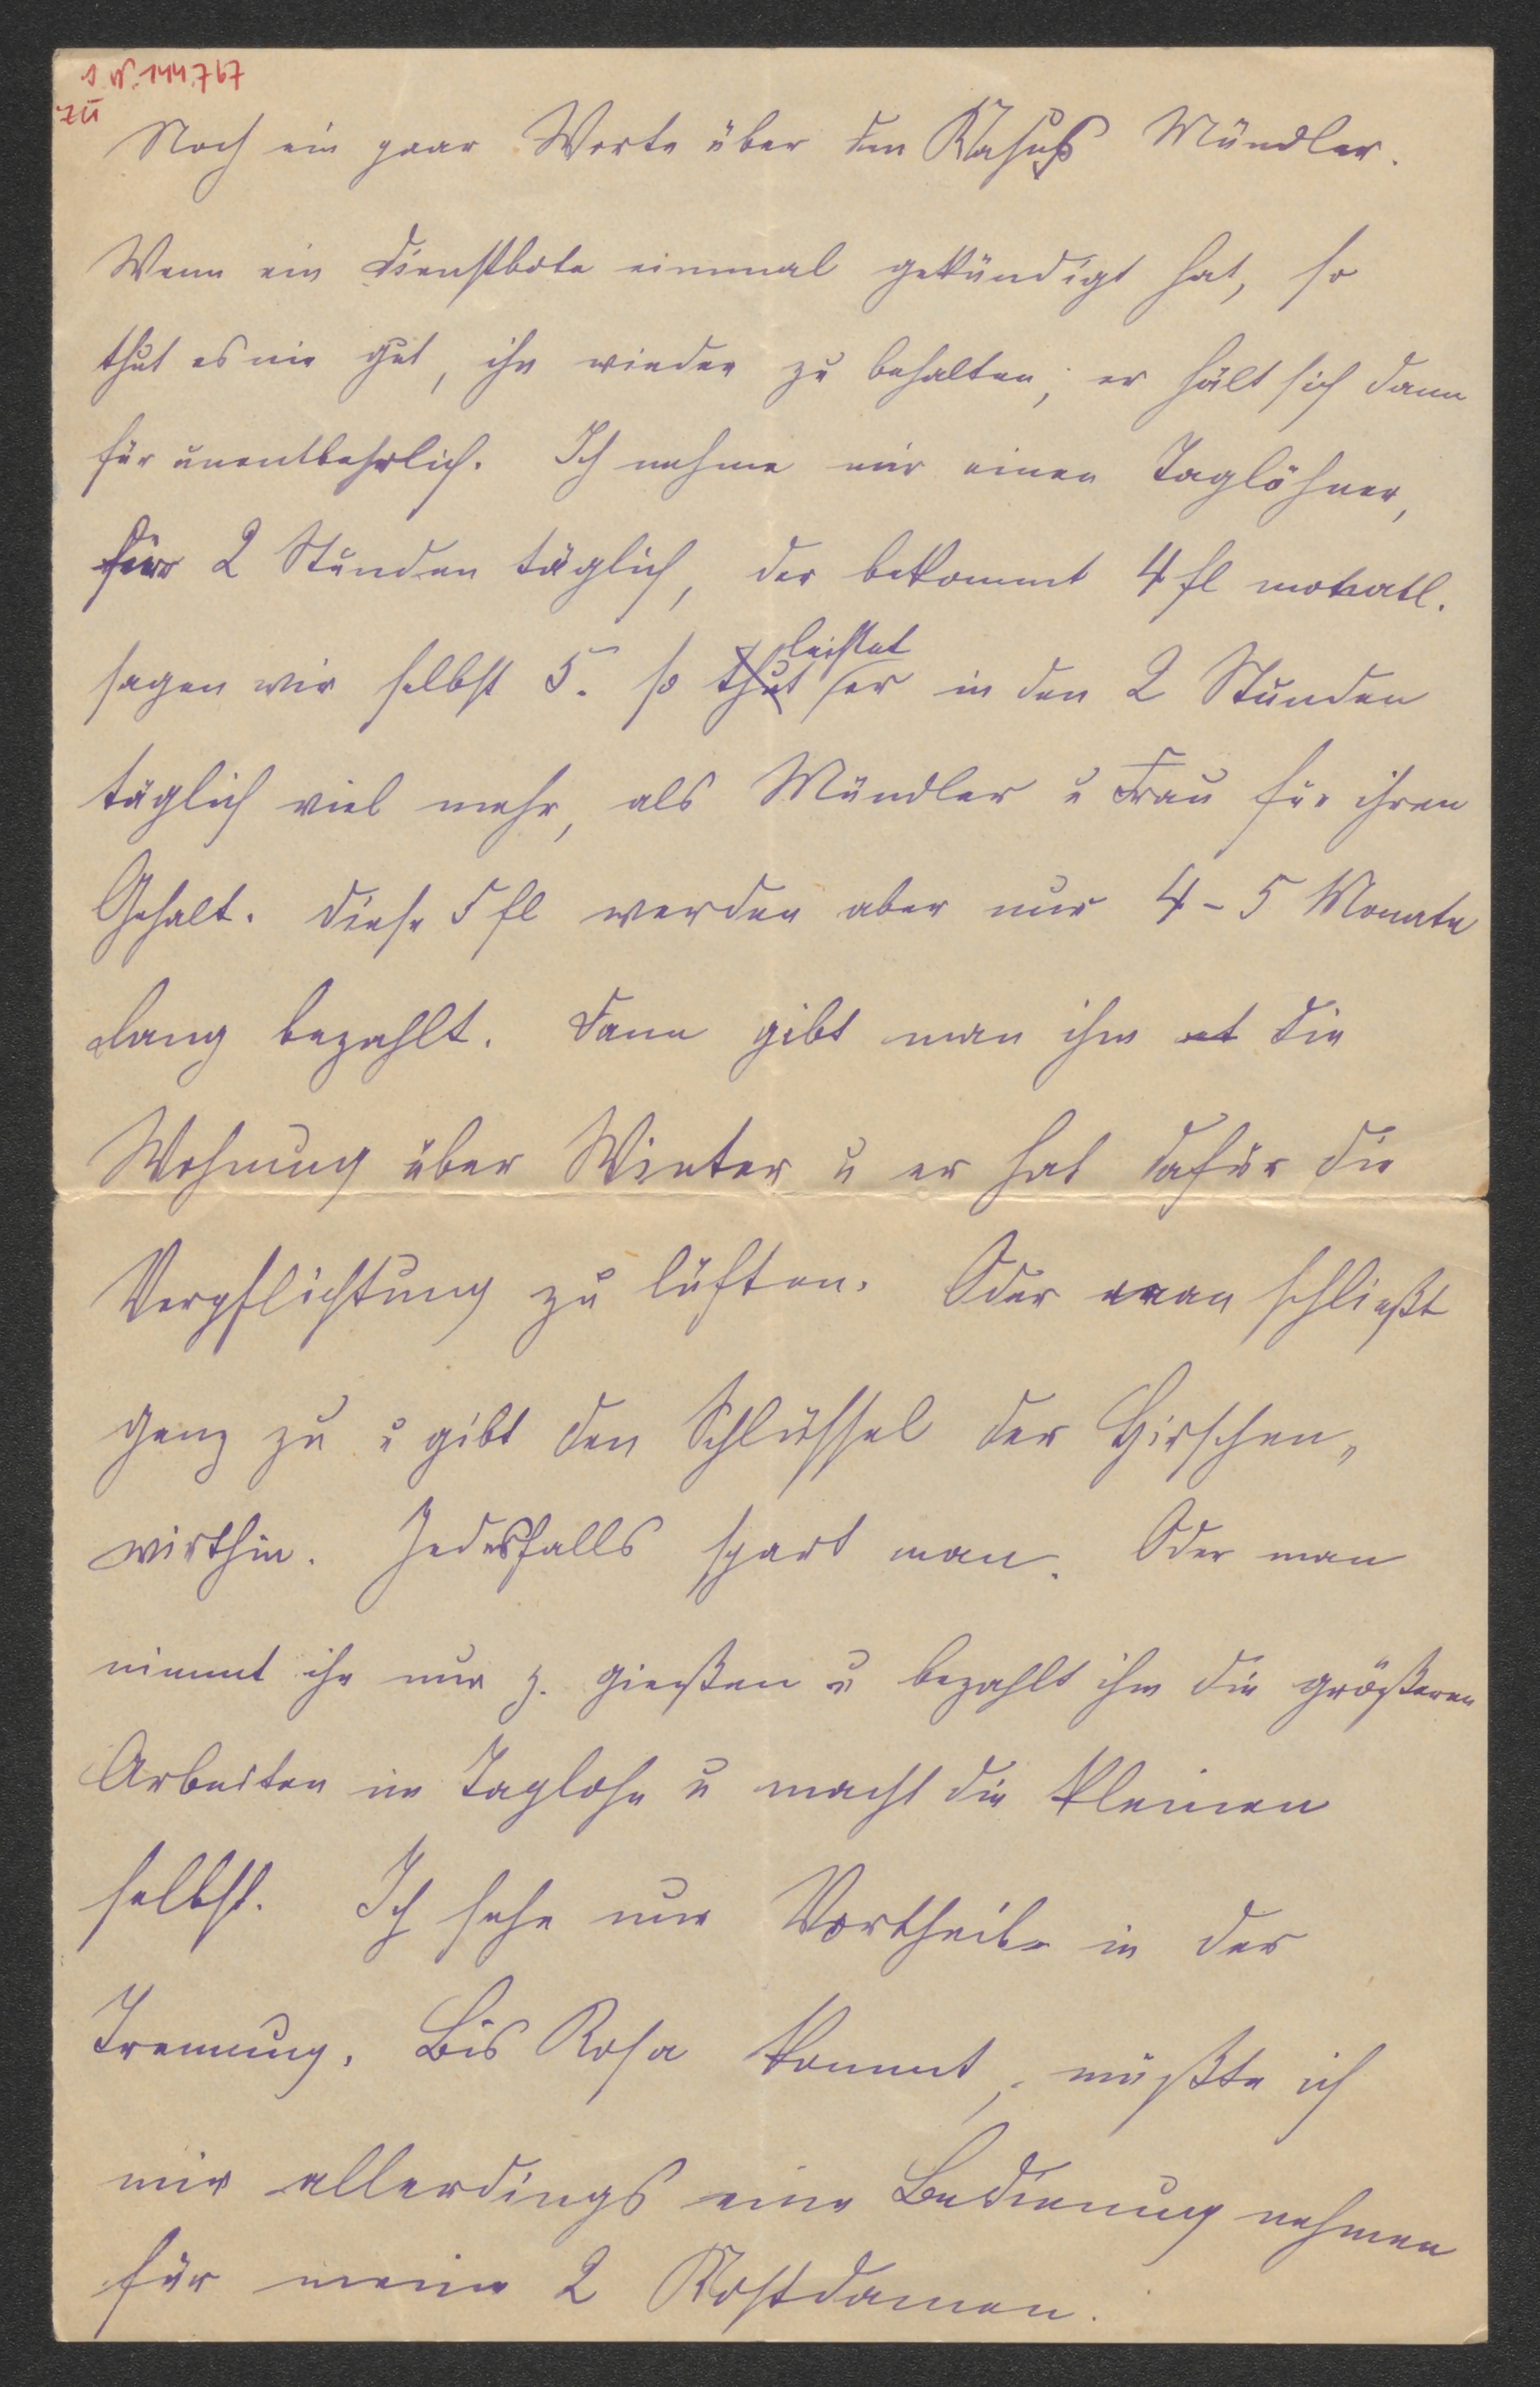 I. N. 144.767
zu
Noch ein paar Worte über den Kasus Mündler.
Wenn ein Dienstbote einmal gekündigt hat, so
thut es nie gut, ihn wieder zu behalten; er hält sich dann
für unentbehrlich. Ich nehme mir einen Taglöhner,
für 2 Stunden täglich, der bekommt 4 fl monatl.
sagen wir selbst 5. so thut leistet er in den 2 Stunden
täglich viel mehr, als Mündler u Frau für ihren
Gehalt. Diese 5 fl werden aber nur 4-5 Monate
lang bezahlt. Dann gibt man ihm et die
Wohnung über Winter u er hat dafür die
Verpflichtung zu lüften. Oder man schließt
ganz zu u gibt den Schlüssel der Hirschen„
wirthin. Jedesfalls spart man. Oder man
nimmt ihn nur z. gießen u bezahlt ihm die größeren
Arbeiten im Taglohn u macht die kleinen
selbst. Ich sehe nur Vortheile in der
Trennung. Bis Rosa kommt, müßte ich
mir allerdings eine Bedienung nehmen
für meine 2 Kostdamen.